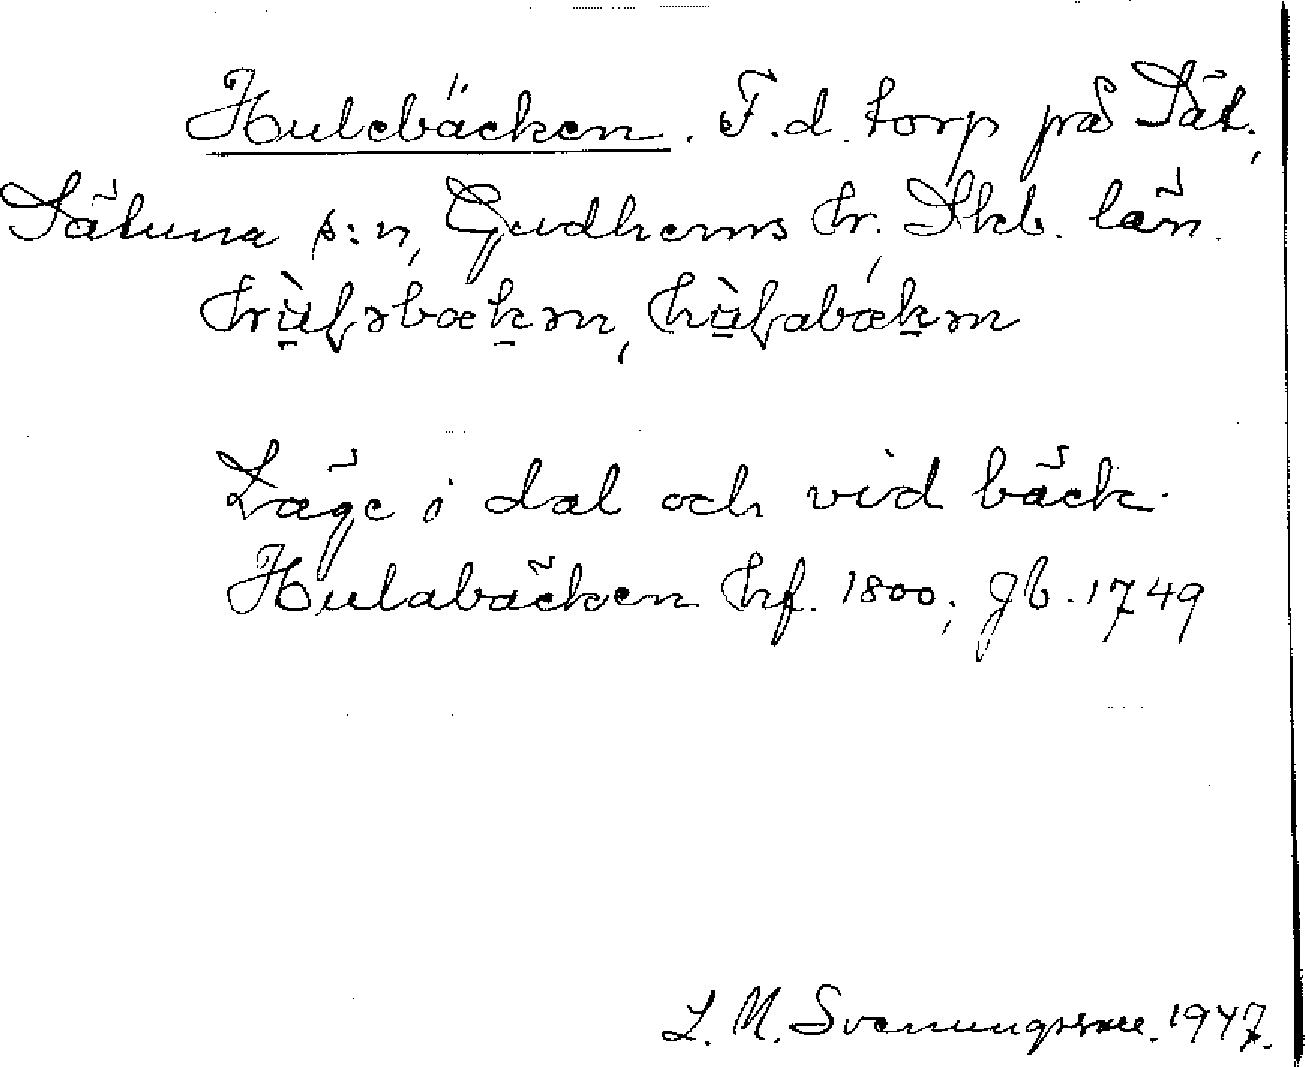 Hulebäcken. F.d. torp på Sät.,
Sätuna s:n, Gudhems hr. Skb. län.
Läge i dal och vid bäck.
Hulabäcken hf. 1800; jb. 1749
L. M. Svenungsson. 1947.